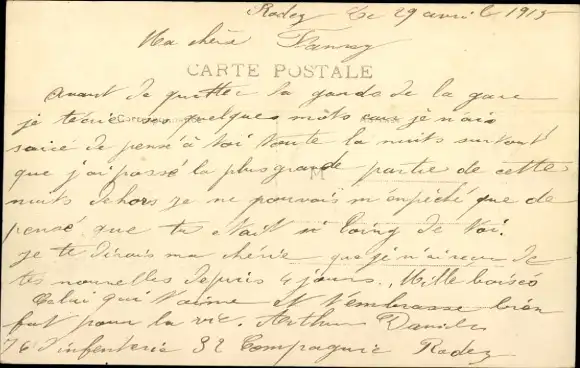 Rodez le 29 avril 1915
Ma chère Fanny
CARTE POSTALE
Avant de quitter la garde de la gare
je técrie ses quelques mots car je nais
de pensé à toi toute la nuits surtout
que j'ai passé la plus grande partie de cette
M
nuits dehors je ne pouvais m'enpéché que de
pensé que tu était si loing de toi.
je te dirais ma chérie que je n'ai reçu de
tes nouvelles depuis 4 jours. Mille baisés
Celui qui t'aime et t'embrasse bien
fort pour la vie. Arthur Daniel
76 d'infenterie 32 Compagnie Rodez